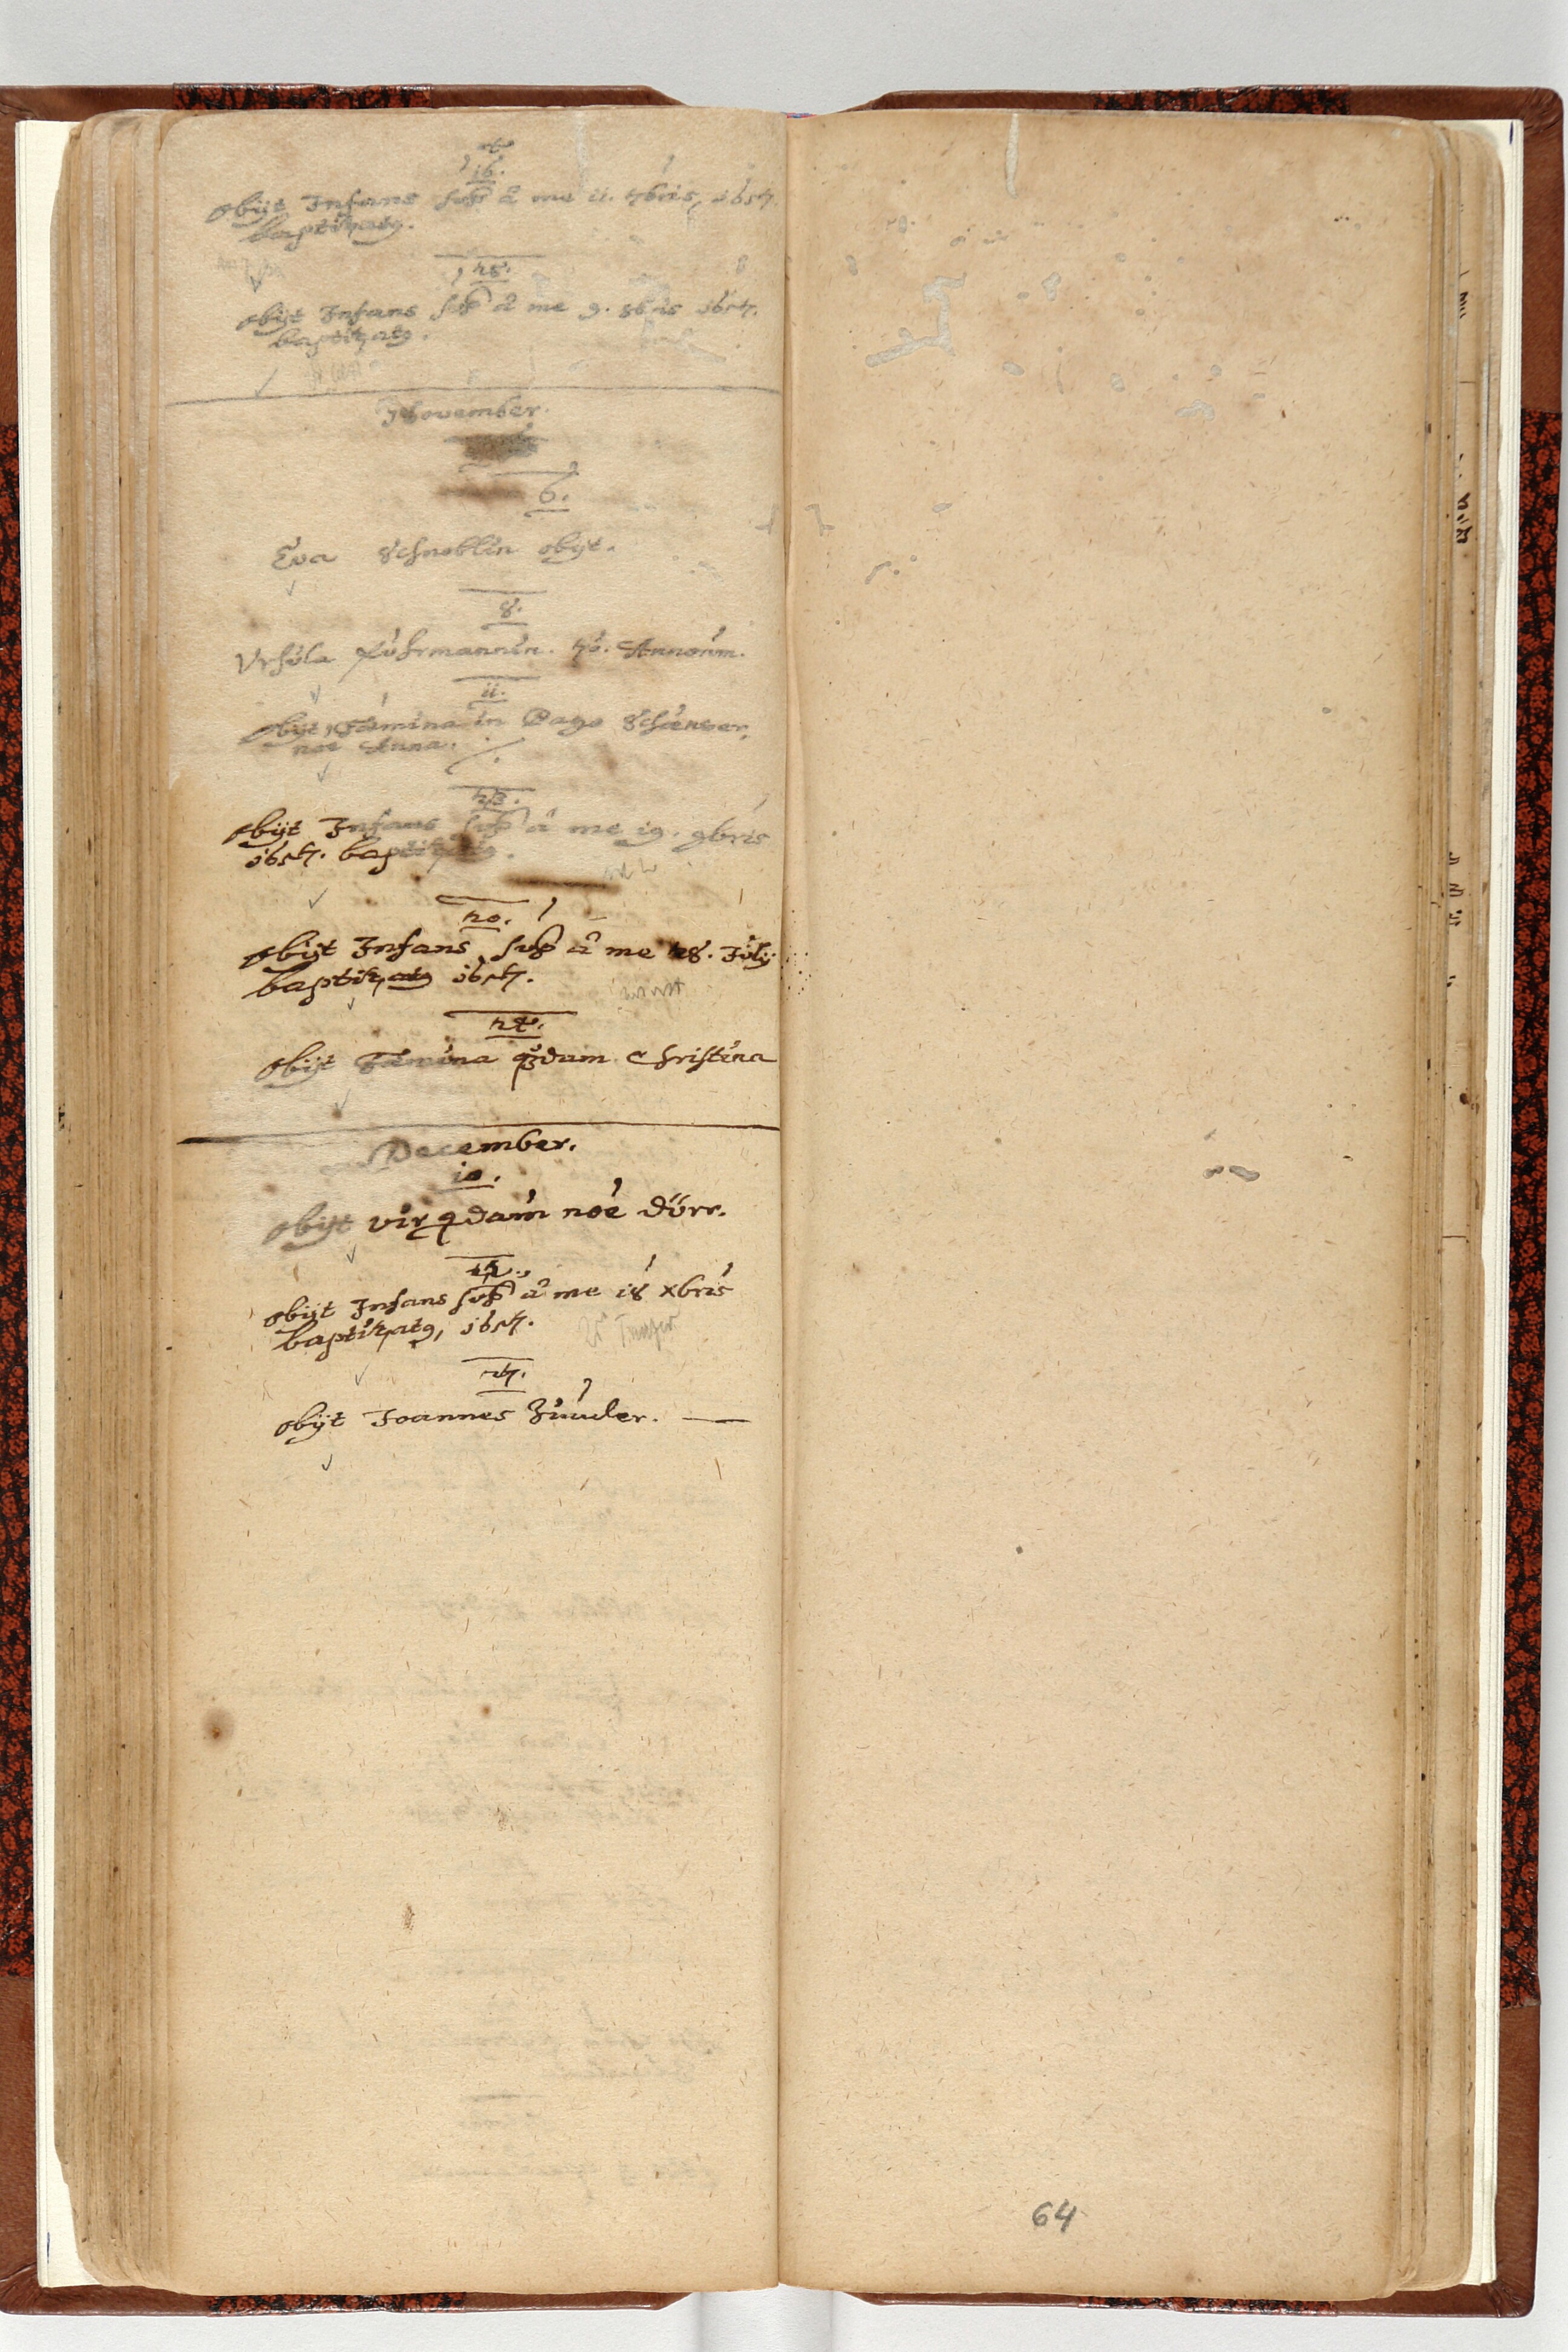 16.
obijt Infans sup à me 11. 7bris 1657.
baptizatg.
28.
obijt Infans sup à me 9. 8bris 1657.
baptizatg.
November.
6.
Eva Schneblin obijt.
8.
Vrsula Fuhrmannin. 70. Annorum.
11.
obijt Fæmina in Pago
noe Anna.
23.
obijt Infans sup à me 19. 9bris
1657. baptizatg.
20.
obijt Infans sup à me 28. Julij
baptizatg 1657.
24.
obijt Fæmina quædam Christina
December.
10.
obijt vir qdam noe Dürr.
22.
obijt Infans sup à me 18 xbris
baptizatg, 1657.
27.
obijt Joannes
64